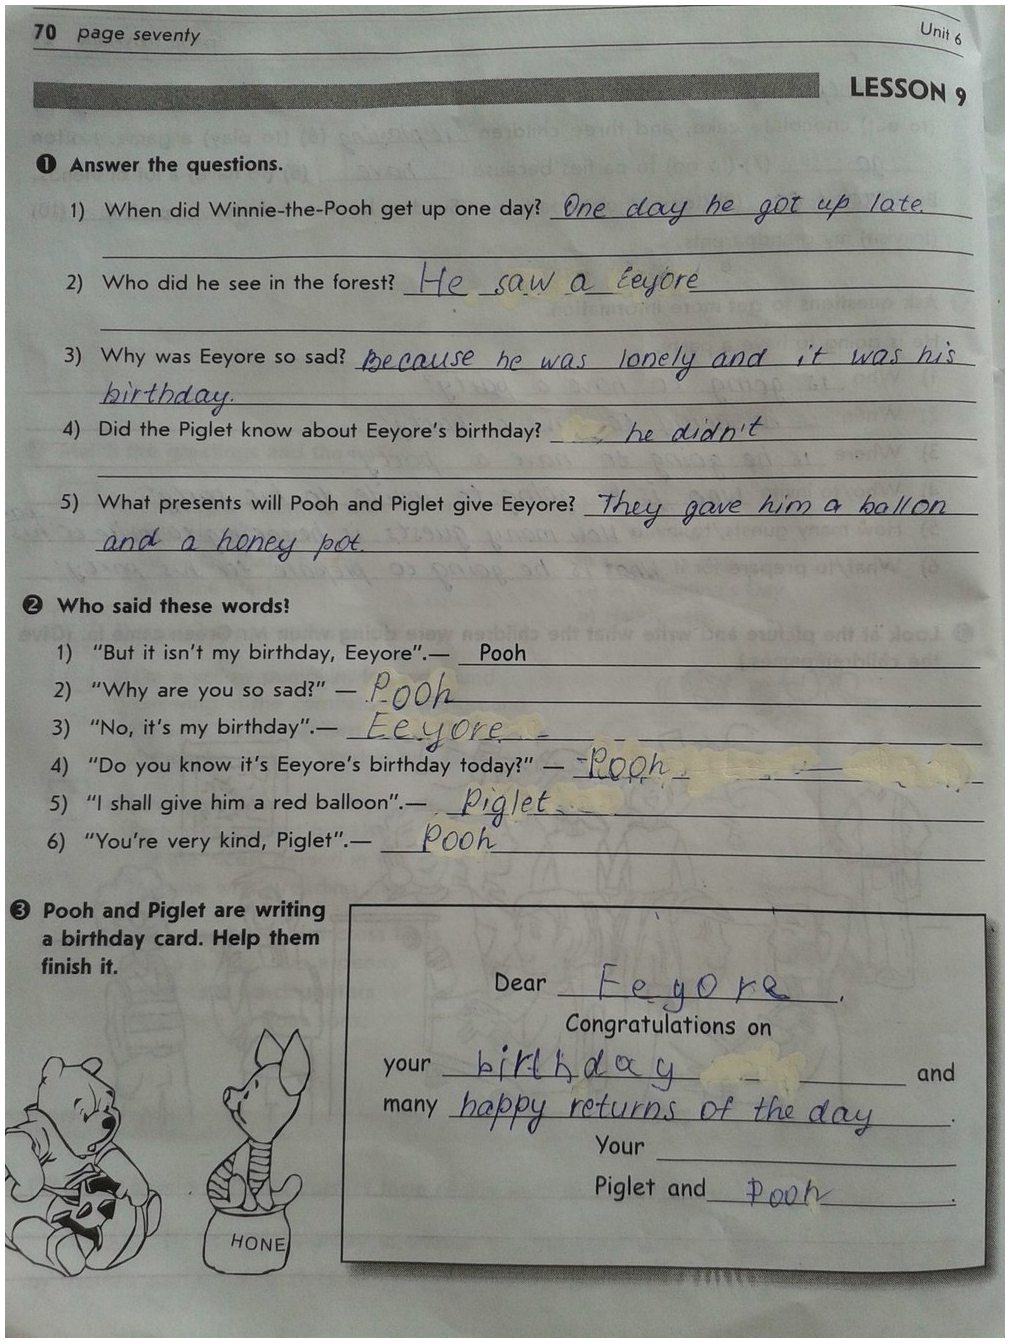 70 page seventy
Unit 6
LESSON 9
❶ Answer the questions.
1) When did Winnie-the-Pooh get up one day? One day he got up late.
2) Who did he see in the forest? He saw a Eeyore
3) Why was Eeyore so sad? Because he was lonely and it was his
birthday.
4) Did the Piglet know about Eeyore's birthday? he didn't
5) What presents will Pooh and Piglet give Eeyore? They gave him a ballon
and a honey pot.
❷ Who said these words?
1) "But it isn't my birthday, Eeyore".— Pooh
2) "Why are you so sad?" — Pooh
3) "No, it's my birthday".— Eeyore
4) "Do you know it's Eeyore's birthday today?" — Pooh
5) "I shall give him a red balloon".— Piglet
6) "You're very kind, Piglet".— Pooh
❸ Pooh and Piglet are writing
a birthday card. Help them
finish it.
Dear Eeyore,
Congratulations on
your birthday and
many happy returns of the day.
Your
Piglet and Pooh.
HONE